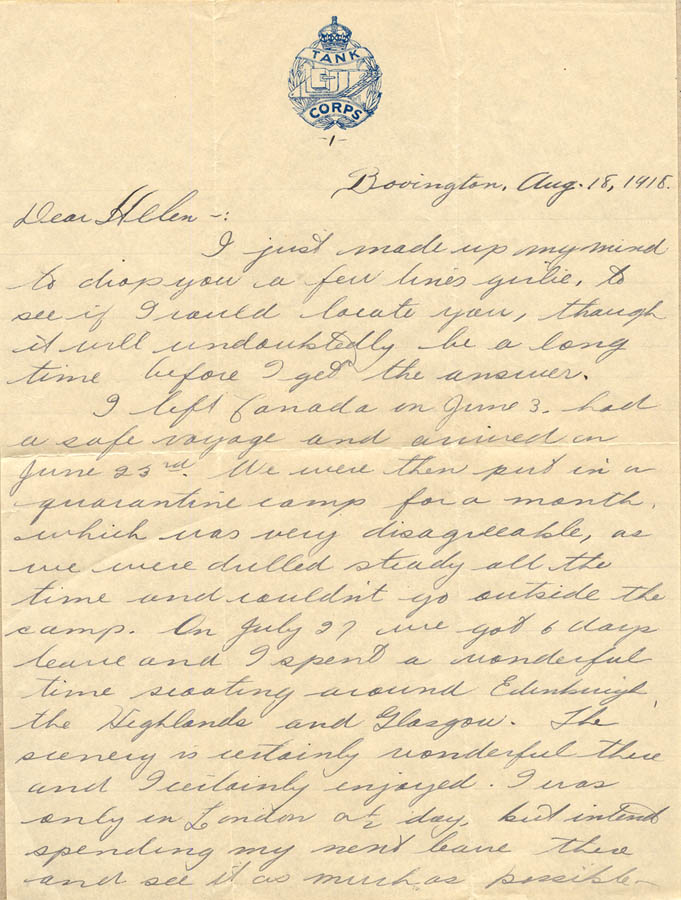 TANK
CORPS
-1-
Bovington, Aug. 18, 1918.
Dear Helen -:
I just made up my mind
to drop you a few lines girlie, to
see if I could locate you, though
it will undoubtedly be a long
time before I get the answer.
I left Canada on June 3. had
a safe voyage and arrived on
June 23rd. We were then put in a
quarantine camp for a month,
which was very disagreeable, as
we were drilled steady all the
time and couldn't go outside the
camp. On July 27 we got 6 days
leave and I spent a wonderful
time scooting around Edinburgh,
the Highlands and Glasgow. The
scenery is certainly wonderful there
and I certainly enjoyed. I was
only in London a ½ day, but intend
spending my next leave there
and see it as much as possible